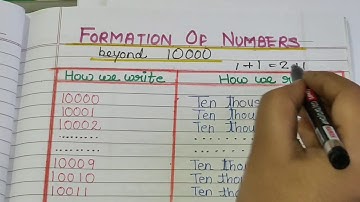 FORMATION OF NUMBERS
beyond 10000
1 + 1 = 2
How we write How we
10000 Ten
10001 Ten
10002 Ten
10009 Ten
10010 Ten
10011 Ten